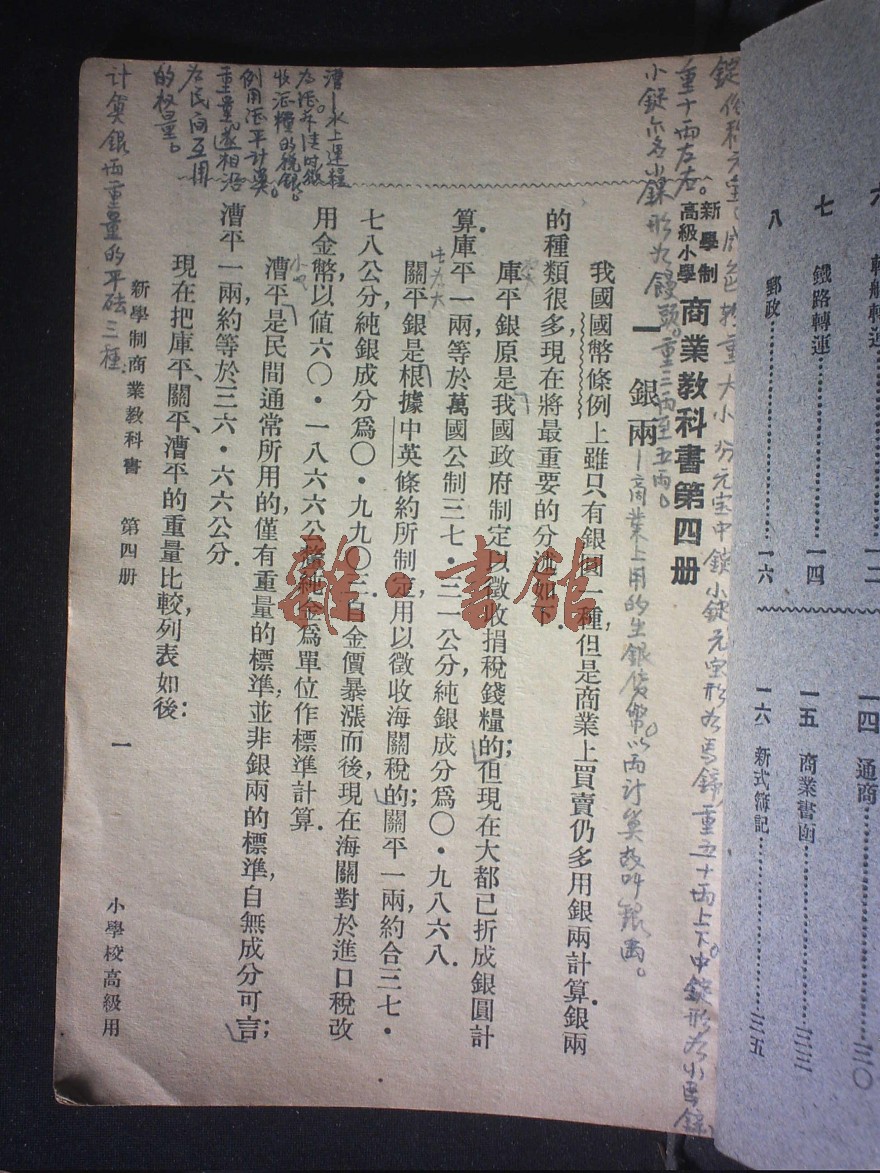 新學制
高級小學
商業教科書第四册
一 銀兩
我國國幣條例上雖只有銀圓一種,但是商業上買賣仍多用銀兩計算.銀兩
的種類很多,現在將最重要的分述如下.
庫平銀原是我國政府制定以徵收捐稅錢糧的;但現在大都已折成銀圓計
算.庫平一兩,等於萬國公制三七·三一公分,純銀成分爲〇·九八六八.
關平銀是根據中英條約所制定,用以徵收海關稅的;關平一兩,約合三七·
七八公分,純銀成分爲〇·九九〇三.自金價暴漲而後,現在海關對於進口稅改
用金幣,以値六〇·一八六六公
純金爲單位作標準計算.
漕平是民間通常所用的,僅有重量的標準,並非銀兩的標準,自無成分可言;
漕平一兩,約等於三六·六六公分.
現在把庫平、關平、漕平的重量比較,列表如後:
新學制商業教科書 第四册 一 小學校高級用
商業上用的生銀貨幣。以兩計算故叫銀兩。
重十兩左右。
小錠亦名小錁形爲饅頭。重三兩至五兩。
漕—水上運糧
收漕糧的稅銀。
例用漕平計算。
重量遂相沿
爲民商互用
的权量。
計算銀兩重量的平砝三種.
七 鐵路轉運 一四
八 郵政 一六
一四 通商 三〇
一五 商業書函 三三
一六 新式簿記 三五
雜·書館